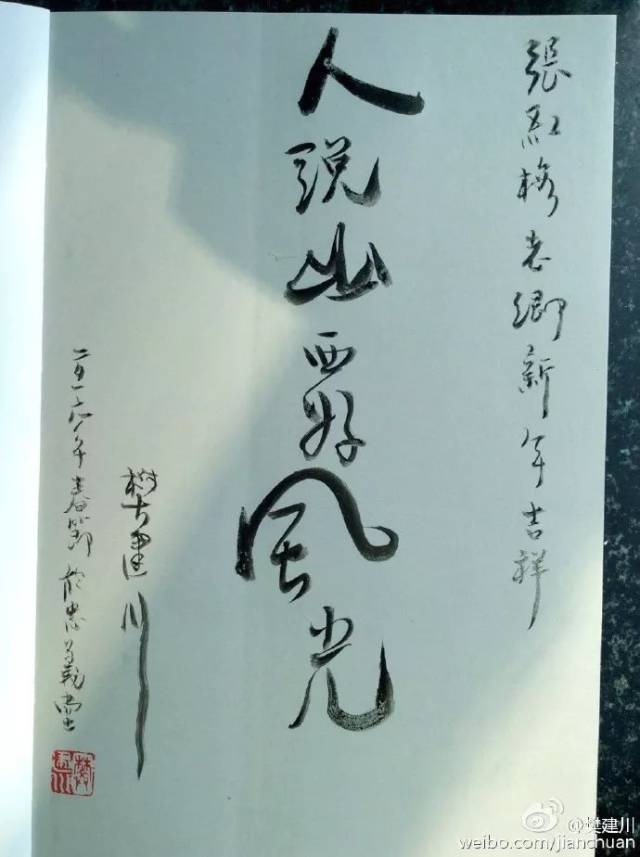 張紅梅老鄉新年吉祥
人説山西好風光
樊建川
二〇一六年春節於忠義堂
@樊建川
weibo.com/jianchuan